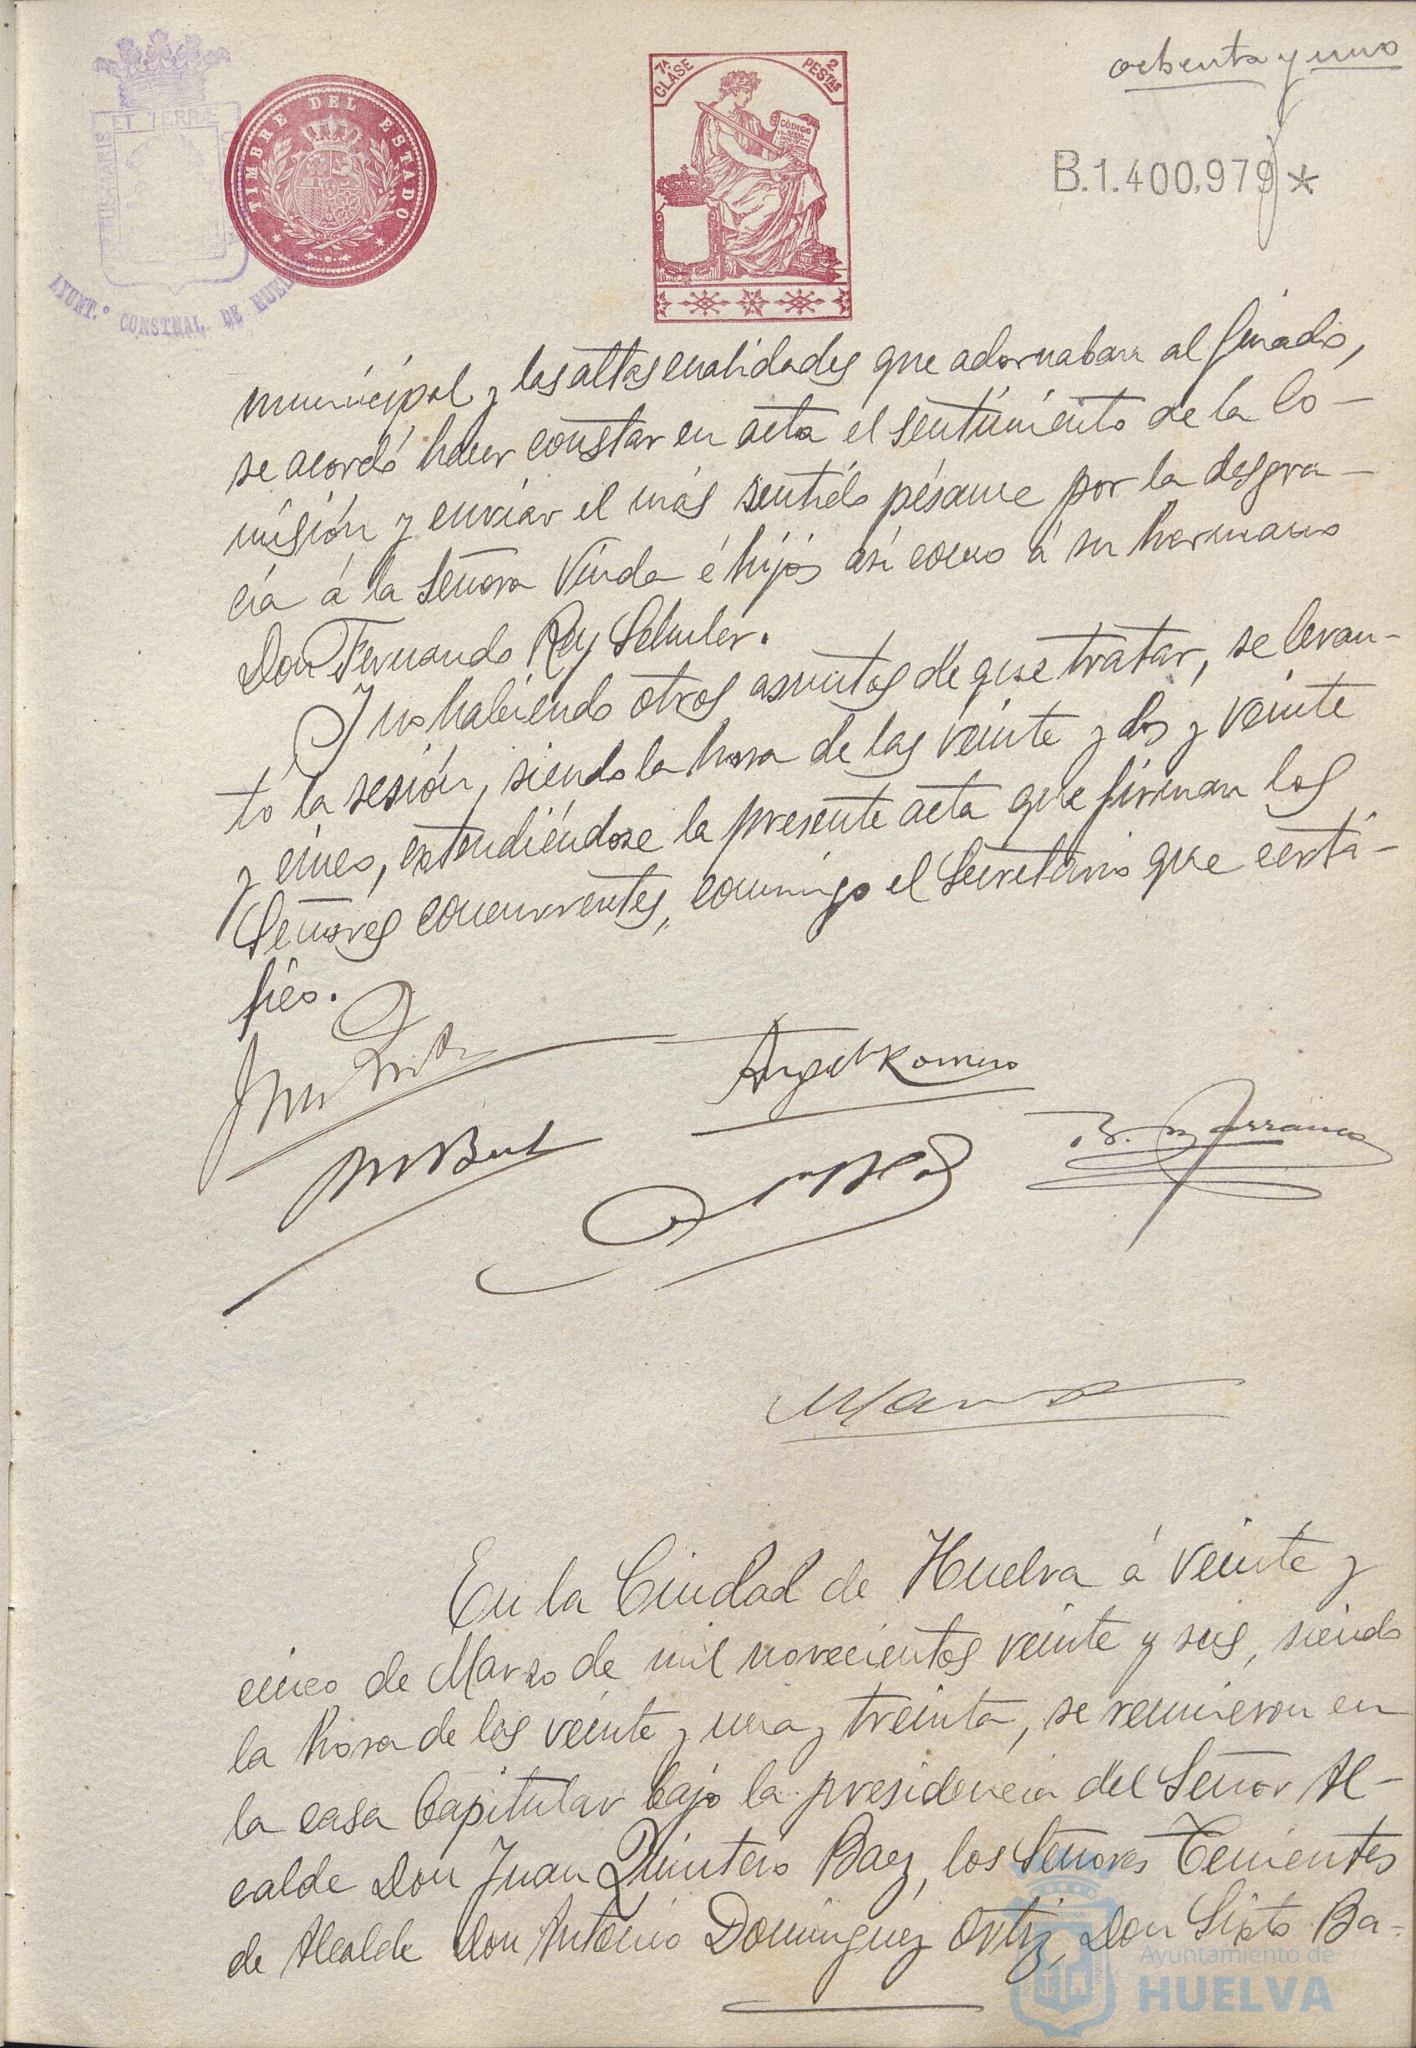 ochenta y uno
PORTUS MARIS ET TERRÆ
AYUNT.º CONSTNAL. DE HUEL
TIMBRE DEL ESTADO
7ª CLASE 2 PESTAS
CÓDIGO
B.1.400,979*
municipal y las altas cualidades que adornaban al finado,
se acordó hacer constar en acta el sentimiento de la Co-
misión y enviar el más sentido pésame por la desgra-
cia á la Señora Viuda é hijos así como á su hermano
Don Fernando Rey Schuler.
Y no habiendo otros asuntos de que tratar, se levan-
tó la sesión, siendo la hora de las veinte y dos y veinte
y cinco, extendiéndose la presente acta que firman los
Señores concurrentes, conmigo el Secretario que certi-
fico.
Angel Romero
En la Ciudad de Huelva á veinte y
cinco de Marzo de mil novecientos veinte y seis, siendo
la hora de las veinte y una y treinta, se reunieron en
la casa Capitular bajo la presidencia del Señor Al-
calde Don Juan Quintero Baez, los Señores Tenientes
de Alcalde Don Antonio Dominguez Ortiz, Don Sixto Ba-
Ayuntamiento de
HUELVA